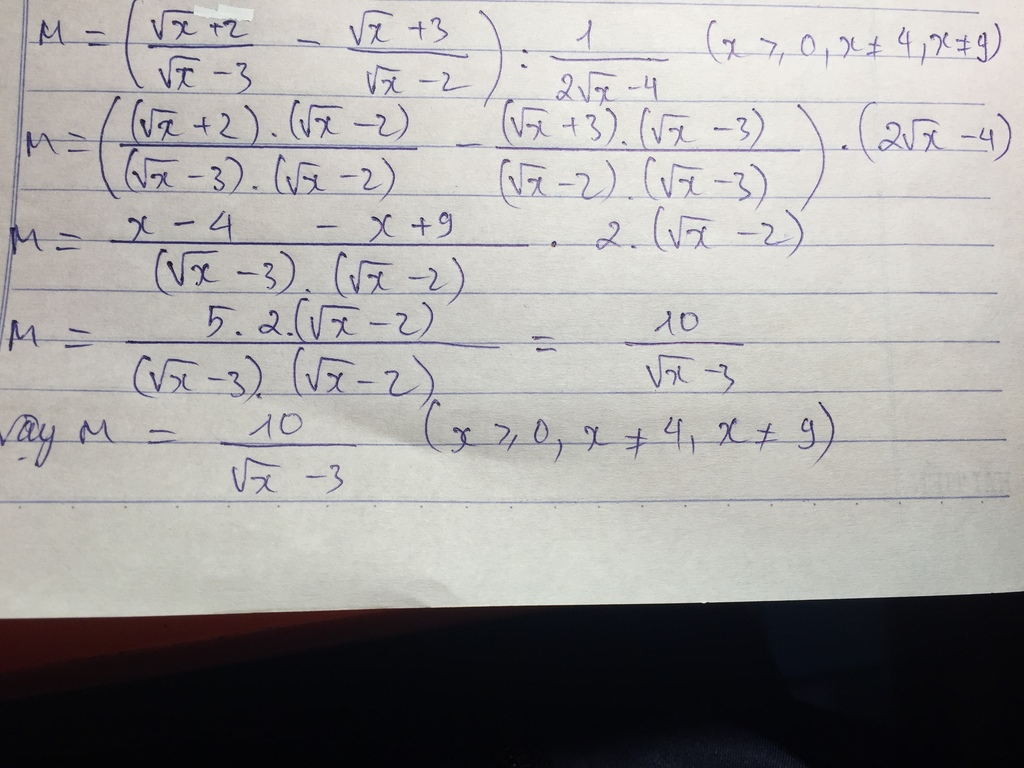 M = ( (√x + 2)/(√x - 3) - (√x + 3)/(√x - 2) ) : 1/(2√x - 4) (x ≥ 0, x ≠ 4, x ≠ 9)
M = ( ((√x + 2).(√x - 2))/((√x - 3).(√x - 2)) - ((√x + 3).(√x - 3))/((√x - 2).(√x - 3)) ) . (2√x - 4)
M = (x - 4 - x + 9)/((√x - 3).(√x - 2)) . 2.(√x - 2)
M = (5.2.(√x - 2))/((√x - 3).(√x - 2)) = 10/(√x - 3)
Vậy M = 10/(√x - 3) (x ≥ 0, x ≠ 4, x ≠ 9)